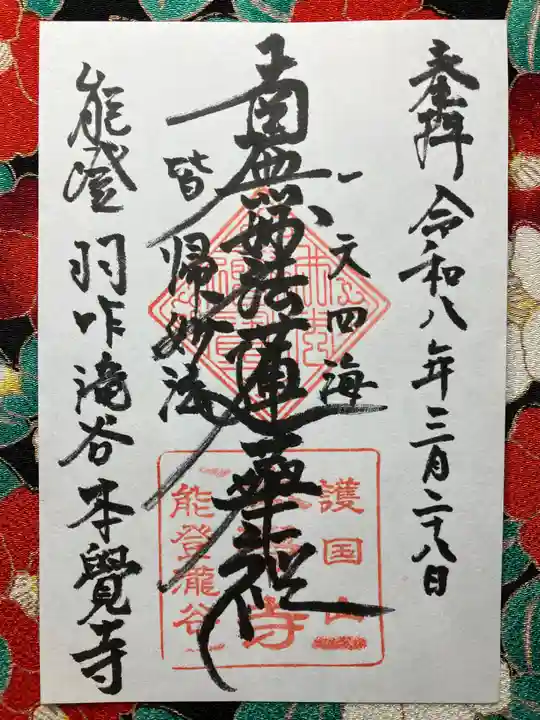 奉拝 令和八年三月二十八日
一天四海
南無妙法蓮華経
皆帰妙法
能登 羽咋滝谷 本覺寺
護国山
寺
能登瀧谷